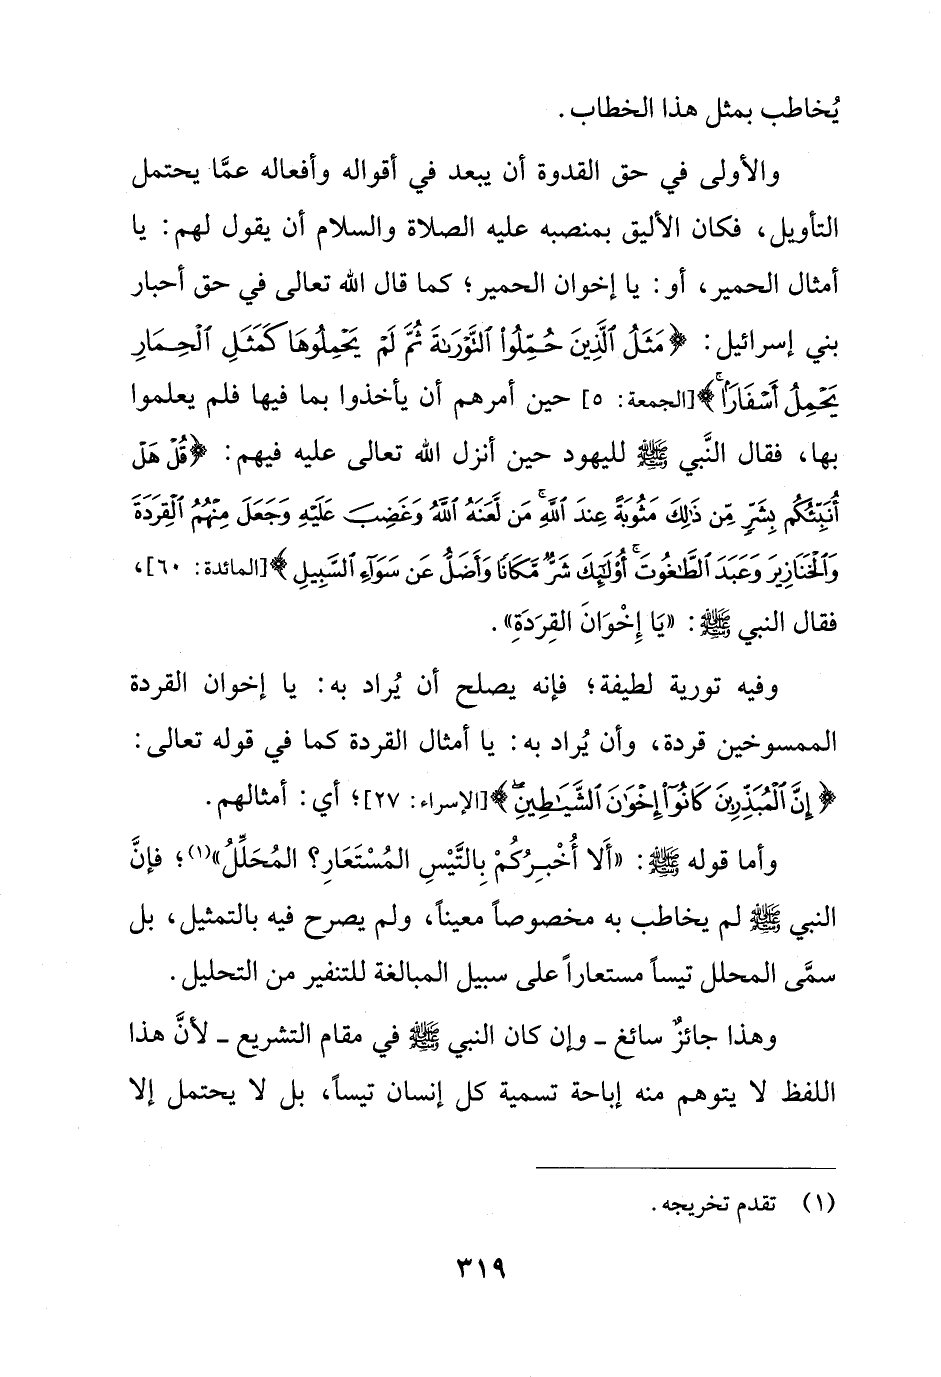 يُخاطب بمثل هذا الخطاب.
والأولى في حق القدوة أن يبعد في أقواله وأفعاله عمَّا يحتمل
التأويل، فكان الأليق بمنصبه عليه الصلاة والسلام أن يقول لهم: يا
أمثال الحمير، أو: يا إخوان الحمير؛ كما قال الله تعالى في حق أحبار
بني إسرائيل: ﴿مَثَلُ ٱلَّذِينَ حُمِّلُوا۟ ٱلتَّوْرَىٰةَ ثُمَّ لَمْ يَحْمِلُوهَا كَمَثَلِ ٱلْحِمَارِ
يَحْمِلُ أَسْفَارًۢا ۚ﴾[الجمعة: ٥] حين أمرهم أن يأخذوا بما فيها فلم يعلموا
بها، فقال النَّبي ﷺ لليهود حين أنزل الله تعالى عليه فيهم: ﴿قُلْ هَلْ
أُنَبِّئُكُم بِشَرٍّ مِّن ذَٰلِكَ مَثُوبَةً عِندَ ٱللَّهِ ۚ مَن لَّعَنَهُ ٱللَّهُ وَغَضِبَ عَلَيْهِ وَجَعَلَ مِنْهُمُ ٱلْقِرَدَةَ
وَٱلْخَنَازِيرَ وَعَبَدَ ٱلطَّٰغُوتَ ۚ أُو۟لَٰٓئِكَ شَرٌّ مَّكَانًا وَأَضَلُّ عَن سَوَآءِ ٱلسَّبِيلِ﴾[المائدة: ٦٠]،
فقال النبي ﷺ: «يَا إِخْوَانَ القِرَدَةِ».
وفيه تورية لطيفة؛ فإنه يصلح أن يُراد به: يا إخوان القردة
الممسوخين قردة، وأن يُراد به: يا أمثال القردة كما في قوله تعالى:
﴿إِنَّ ٱلْمُبَذِّرِينَ كَانُوٓا۟ إِخْوَٰنَ ٱلشَّيَٰطِينِ ۖ﴾[الإسراء: ٢٧]؛ أي: أمثالهم.
وأما قوله ﷺ: «أَلا أُخْبِرُكُمْ بِالتَّيْسِ المُسْتَعَارِ؟ المُحَلِّلُ»(١)؛ فإنَّ
النبي ﷺ لم يخاطب به مخصوصاً معيناً، ولم يصرح فيه بالتمثيل، بل
سمَّى المحلل تيساً مستعاراً على سبيل المبالغة للتنفير من التحليل.
وهذا جائزٌ سائغ ـ وإن كان النبي ﷺ في مقام التشريع ـ لأنَّ هذا
اللفظ لا يتوهم منه إباحة تسمية كل إنسان تيساً، بل لا يحتمل إلا
(١) تقدم تخريجه.
٣١٩